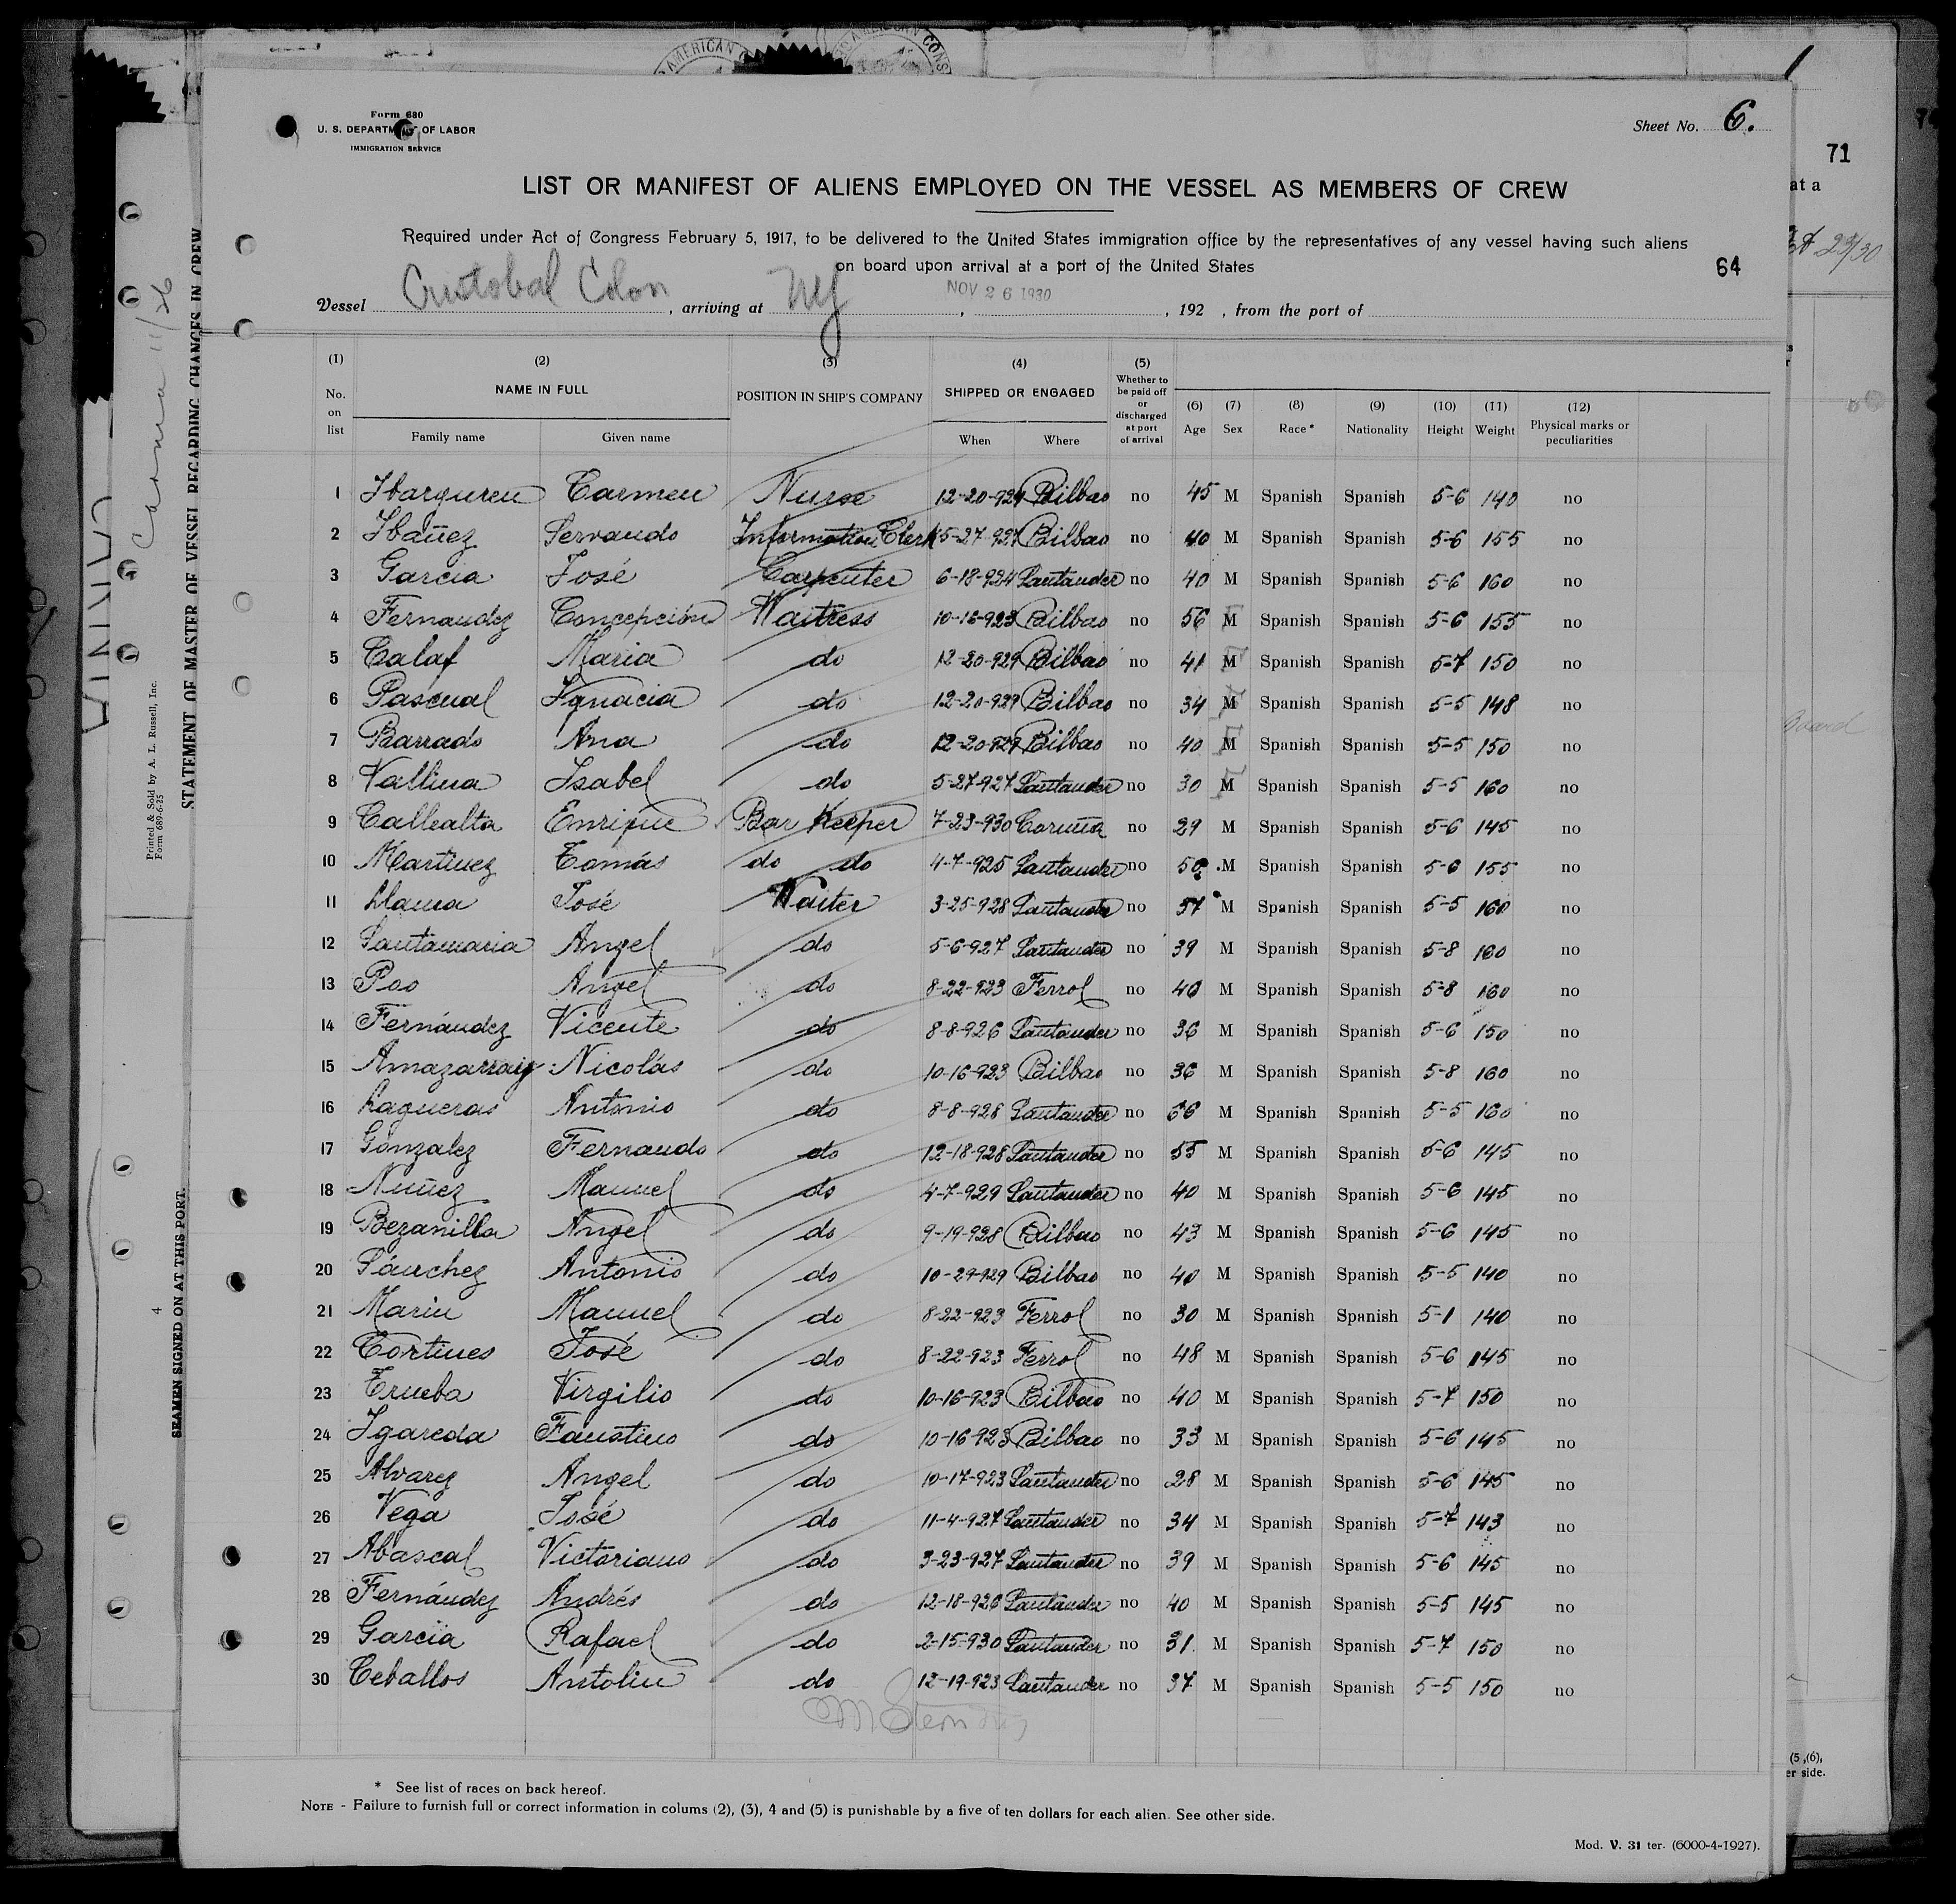 Form 680
U. S. DEPARTMENT OF LABOR
IMMIGRATION SERVICE
Sheet No. 6.
71
at a
LIST OR MANIFEST OF ALIENS EMPLOYED ON THE VESSEL AS MEMBERS OF CREW
Required under Act of Congress February 5, 1917, to be delivered to the United States immigration office by the representatives of any vessel having such aliens
on board upon arrival at a port of the United States
64
Vessel Cristobal Colon, arriving at NY, NOV 26 1930, 192 , from the port of
(1) No. on list
(2) NAME IN FULL Family name Given name
(3) POSITION IN SHIP'S COMPANY
(4) SHIPPED OR ENGAGED When Where
(5) Whether to be paid off or discharged at port of arrival
(6) Age (7) Sex (8) Race* (9) Nationality (10) Height (11) Weight (12) Physical marks or peculiarities
1 Ibarguren Carmen Nurse 12-20-929 Bilbao no 45 M Spanish Spanish 5-6 140 no
2 Ibañez Servando Information Clerk 5-27-927 Bilbao no 40 M Spanish Spanish 5-6 155 no
3 Garcia José Carpenter 6-18-924 Santander no 40 M Spanish Spanish 5-6 160 no
4 Fernandez Concepción Waitress 10-16-923 Bilbao no 56 M Spanish Spanish 5-6 155 no
5 Calaf Maria do 12-20-929 Bilbao no 41 M Spanish Spanish 5-7 150 no
6 Pascual Ignacia do 12-20-929 Bilbao no 34 M Spanish Spanish 5-5 148 no
7 Barrado Ana do 12-20-929 Bilbao no 40 M Spanish Spanish 5-5 150 no
8 Vallina Isabel do 5-27-927 Santander no 30 M Spanish Spanish 5-5 160 no
9 Callealta Enrique Bar Keeper 7-23-930 Coruña no 29 M Spanish Spanish 5-6 145 no
10 Martinez Tomás do do 4-7-925 Santander no 50 M Spanish Spanish 5-6 155 no
11 Llama José Waiter 3-25-928 Santander no 57 M Spanish Spanish 5-5 160 no
12 Santamaria Angel do 5-6-927 Santander no 39 M Spanish Spanish 5-8 160 no
13 Poo Angel do 8-22-923 Ferrol no 40 M Spanish Spanish 5-8 160 no
14 Fernández Vicente do 8-8-926 Santander no 36 M Spanish Spanish 5-6 150 no
15 Amazarray Nicolás do 10-16-923 Bilbao no 36 M Spanish Spanish 5-8 160 no
16 Lagueras Antonio do 8-8-928 Santander no 36 M Spanish Spanish 5-5 160 no
17 Gonzalez Fernando do 12-18-928 Santander no 55 M Spanish Spanish 5-6 145 no
18 Nuñez Manuel do 4-7-929 Santander no 40 M Spanish Spanish 5-6 145 no
19 Bezanilla Angel do 9-19-928 Bilbao no 43 M Spanish Spanish 5-6 145 no
20 Sánchez Antonio do 10-29-929 Bilbao no 40 M Spanish Spanish 5-5 140 no
21 Marin Manuel do 8-22-923 Ferrol no 30 M Spanish Spanish 5-1 140 no
22 Cortines José do 8-22-923 Ferrol no 48 M Spanish Spanish 5-6 145 no
23 Trueba Virgilio do 10-16-923 Bilbao no 40 M Spanish Spanish 5-7 150 no
24 Igareda Faustino do 10-16-923 Bilbao no 33 M Spanish Spanish 5-6 145 no
25 Alvarez Angel do 10-17-923 Santander no 28 M Spanish Spanish 5-6 145 no
26 Vega José do 11-4-927 Santander no 34 M Spanish Spanish 5-7 143 no
27 Abascal Victoriano do 3-23-927 Santander no 39 M Spanish Spanish 5-6 145 no
28 Fernández Andrés do 12-18-926 Santander no 40 M Spanish Spanish 5-5 145 no
29 Garcia Rafael do 2-15-930 Santander no 31 M Spanish Spanish 5-7 150 no
30 Ceballos Antolin do 12-19-923 Santander no 37 M Spanish Spanish 5-5 150 no
* See list of races on back hereof.
NOTE - Failure to furnish full or correct information in colums (2), (3), 4 and (5) is punishable by a five of ten dollars for each alien. See other side.
Mod. V. 31 ter. (6000-4-1927).
(5 ,(6),
er side.
STATEMENT OF MASTER OF VESSEL REGARDING CHANGES IN CREW
SEAMEN SIGNED ON AT THIS PORT.
Printed & Sold by A. L. Russell, Inc.
Form 689-6-25
4